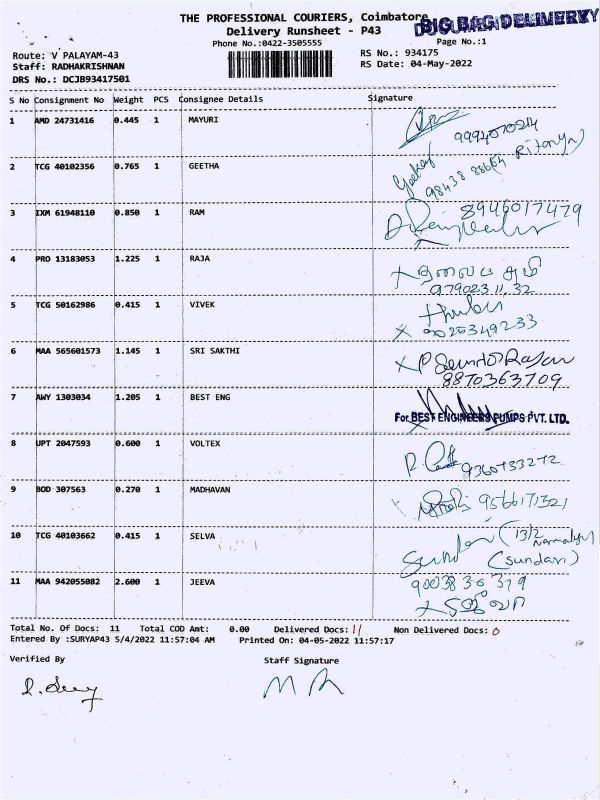 THE PROFESSIONAL COURIERS, Coimbatore
BIG BAG DELIVERY
Delivery Runsheet - P43
Phone No.:0422-3505555
Page No.:1
Route: V PALAYAM-43
RS No.: 934175
Staff: RADHAKRISHNAN
RS Date: 04-May-2022
DRS No.: DCJB93417501
S No Consignment No Weight PCS Consignee Details Signature
1 AMD 24731416 0.445 1 MAYURI
9994070214
2 TCG 40102356 0.765 1 GEETHA
98438 88664
3 IXM 61948110 0.850 1 RAM
8946017479
4 PRO 13183053 1.225 1 RAJA
979023 11.32
5 TCG 50162986 0.415 1 VIVEK
9025349233
6 MAA 565601573 1.145 1 SRI SAKTHI
8870363709
7 AWY 1303034 1.205 1 BEST ENG
For BEST ENGINEERS PUMPS PVT. LTD.
8 UPT 2047593 0.600 1 VOLTEX
9360733272
9 BOD 307563 0.270 1 MADHAVAN
9566171321
10 TCG 40103662 0.415 1 SELVA
(sundari)
11 MAA 942055082 2.600 1 JEEVA
9003836379
Total No. Of Docs: 11 Total COD Amt: 0.00 Delivered Docs: 11 Non Delivered Docs: 0
Entered By :SURYAP43 5/4/2022 11:57:04 AM Printed On: 04-05-2022 11:57:17
Verified By Staff Signature